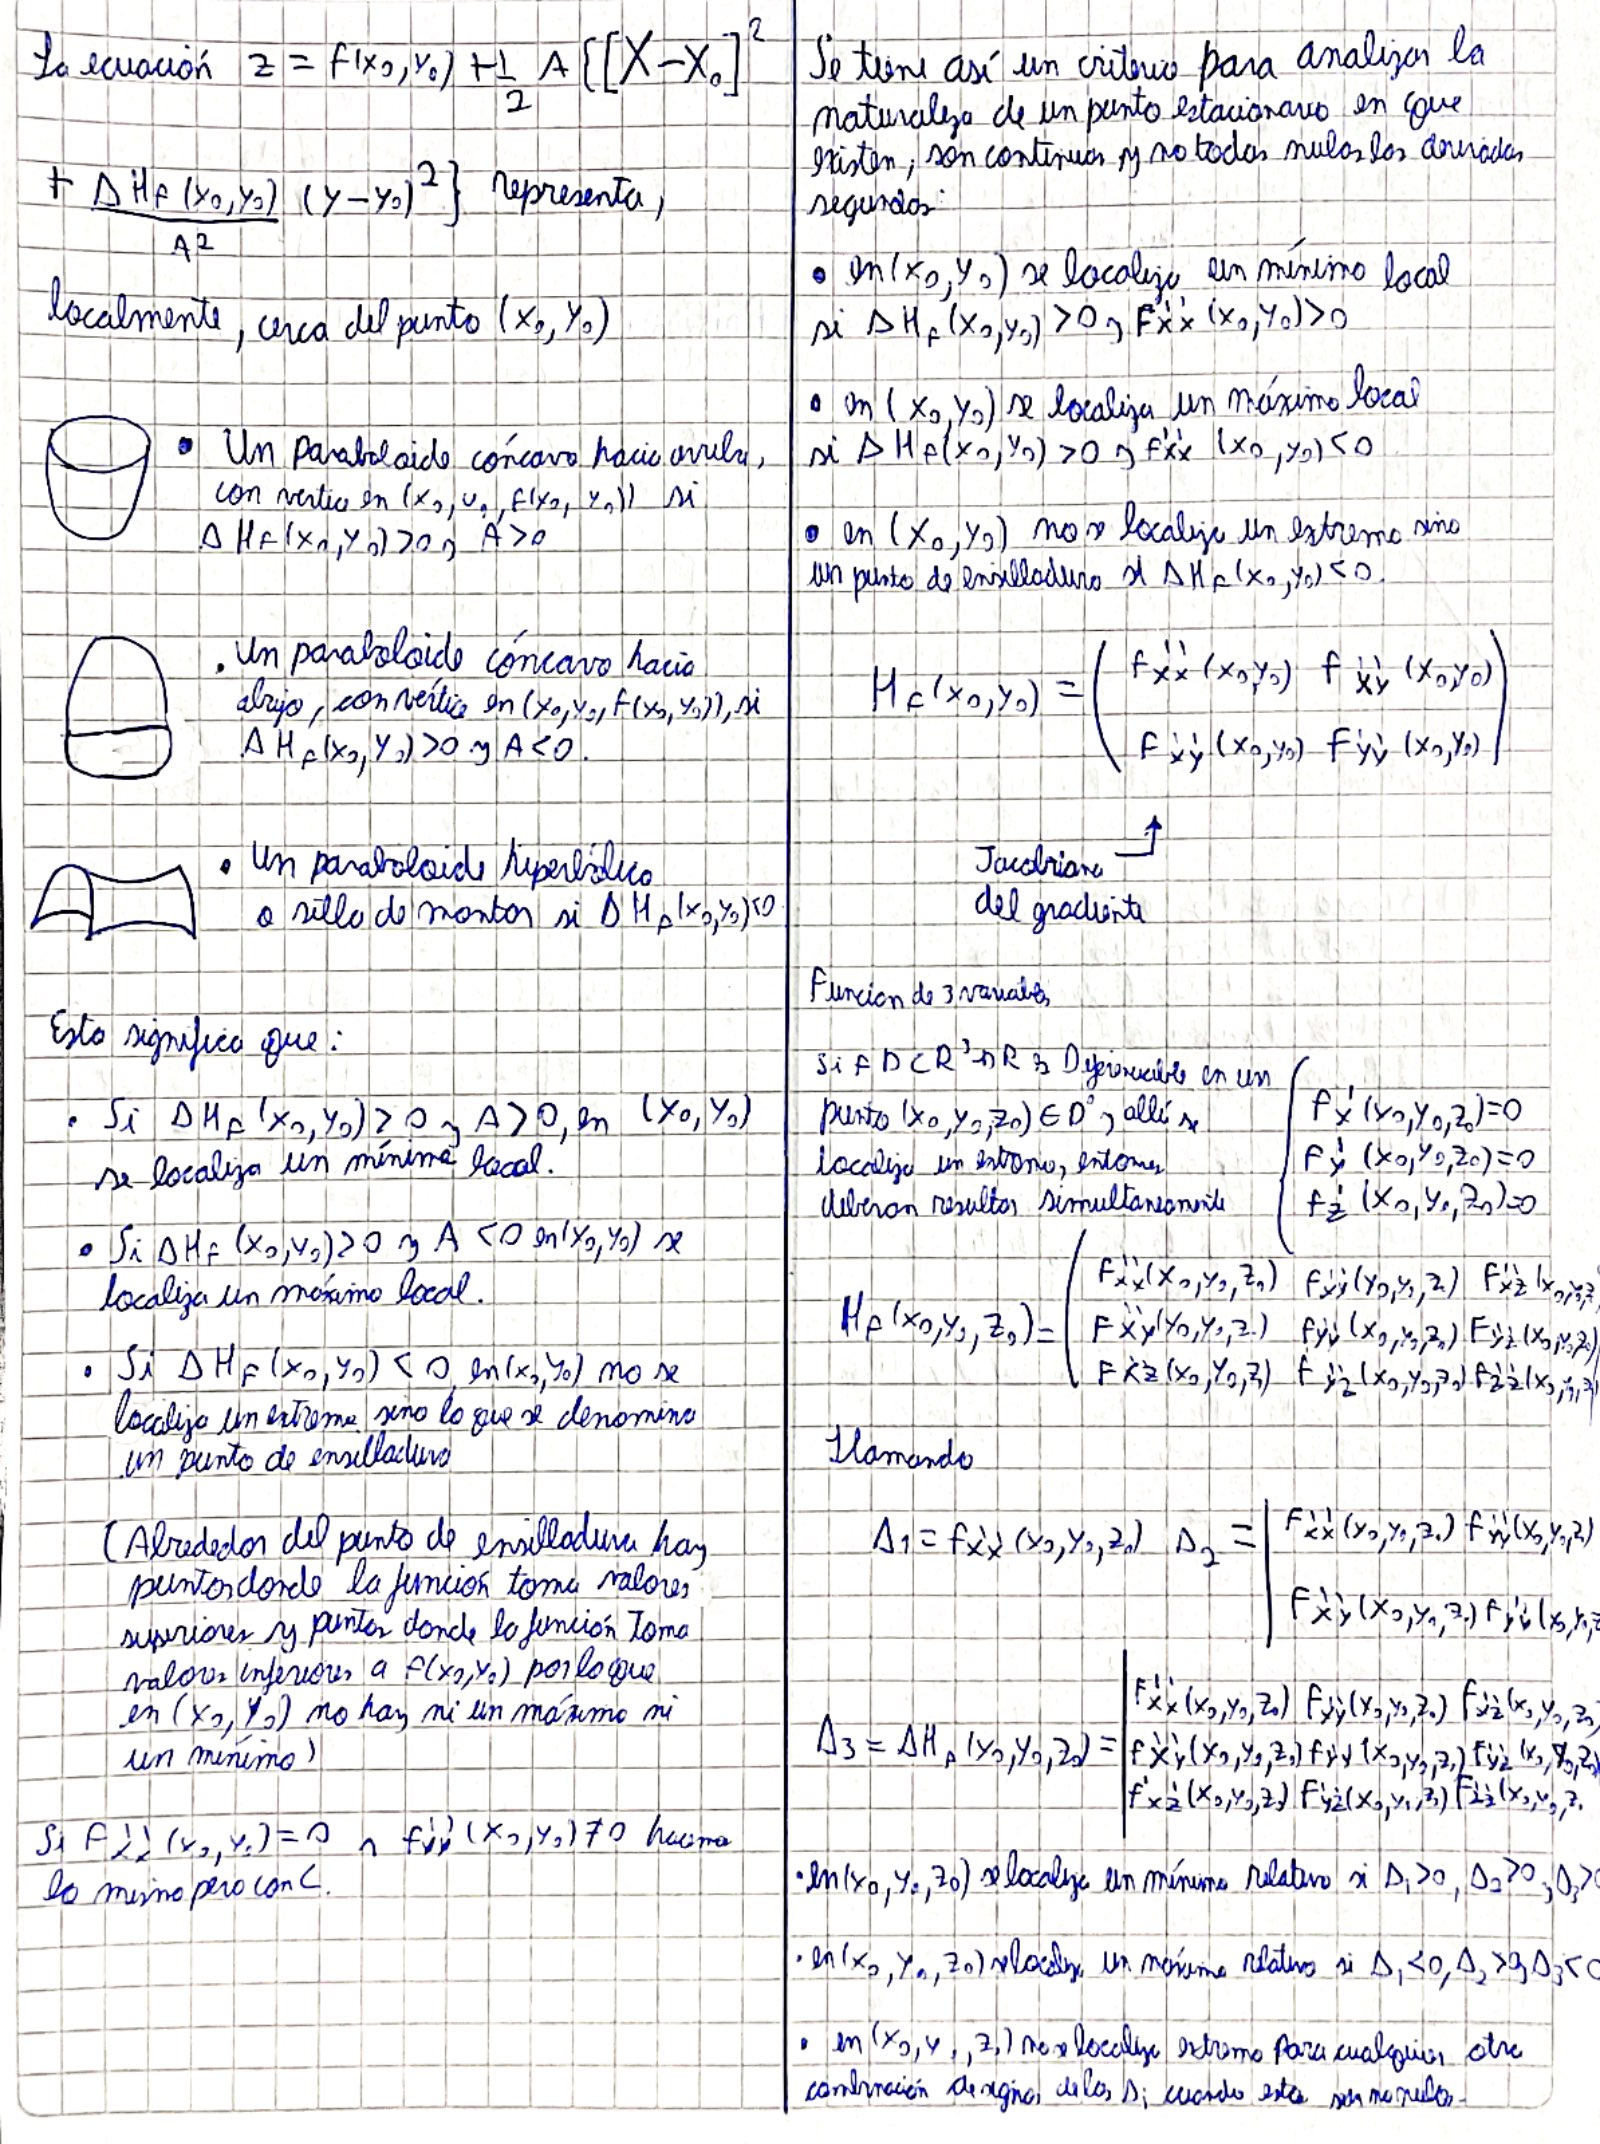 La ecuación z = f(x₀,y₀) + 1/2 A {[X-X₀]²
+ ΔHf(x₀,y₀)/A² (y-y₀)²} representa,
localmente, cerca del punto (x₀,y₀)
• Un paraboloide cóncavo hacia arriba,
con vertice en (x₀,y₀,f(x₀,y₀)) si
ΔHf(x₀,y₀)>0 y A>0
• Un paraboloide cóncavo hacia
abajo, con vértice en (x₀,y₀,f(x₀,y₀)), si
ΔHf(x₀,y₀)>0 y A<0.
• Un paraboloide hiperbólico
o silla de montar si ΔHf(x₀,y₀)<0
Esto significa que:
• Si ΔHf(x₀,y₀)>0 y A>0, en (x₀,y₀)
se localiza un mínimo local.
• Si ΔHf(x₀,y₀)>0 y A<0 en (x₀,y₀) se
localiza un máximo local.
• Si ΔHf(x₀,y₀)<0 en (x₀,y₀) no se
localiza un extremo sino lo que se denomina
un punto de ensilladura
(Alrededor del punto de ensilladura hay
puntos donde la función toma valores
superiores y puntos donde la función toma
valores inferiores a f(x₀,y₀) por lo que
en (x₀,y₀) no hay ni un máximo ni
un mínimo)
Si f''xx(x₀,y₀)=0 y f''yy(x₀,y₀)≠0 hacemo
lo mismo pero con C.
Se tiene así un criterio para analizar la
naturaleza de un punto estacionario en que
existen, son continuas y no todas nulas las derivadas
segundas:
• en (x₀,y₀) se localiza un mínimo local
si ΔHf(x₀,y₀)>0 y f''xx(x₀,y₀)>0
• en (x₀,y₀) se localiza un máximo local
si ΔHf(x₀,y₀)>0 y f''xx(x₀,y₀)<0
• en (x₀,y₀) no se localiza un extremo sino
un punto de ensilladura si ΔHf(x₀,y₀)<0.
Hf(x₀,y₀) = ( f''xx(x₀,y₀) f''xy(x₀,y₀)
f''xy(x₀,y₀) f''yy(x₀,y₀) )
Jacobiano
del gradiente
Funcion de 3 variables
Si f D⊂R³→R es Diferenciable en un
punto (x₀,y₀,z₀)∈D° y allí se
localiza un extremo, entonces
deberan resultar simultaneamente
{ f'x(x₀,y₀,z₀)=0
f'y(x₀,y₀,z₀)=0
f'z(x₀,y₀,z₀)=0
Hf(x₀,y₀,z₀)= ( f''xx(x₀,y₀,z₀) f''xy(x₀,y₀,z₀) f''xz(x₀,y₀,z
f''xy(x₀,y₀,z₀) f''yy(x₀,y₀,z₀) f''yz(x₀,y₀,z₀)
f''xz(x₀,y₀,z₀) f''yz(x₀,y₀,z₀) f''zz(x₀,y₀,z
Llamando
Δ₁ = f''xx(x₀,y₀,z₀) Δ₂ = | f''xx(x₀,y₀,z₀) f''xy(x₀,y₀,z₀)
f''xy(x₀,y₀,z₀) f''yy(x₀,y₀,z
Δ₃ = ΔHf(x₀,y₀,z₀) = | f''xx(x₀,y₀,z₀) f''xy(x₀,y₀,z₀) f''xz(x₀,y₀,z₀)
f''xy(x₀,y₀,z₀) f''yy(x₀,y₀,z₀) f''yz(x₀,y₀,z₀)
f''xz(x₀,y₀,z₀) f''yz(x₀,y₀,z₀) f''zz(x₀,y₀,z
• en (x₀,y₀,z₀) se localiza un mínimo relativo si Δ₁>0, Δ₂>0 y Δ₃>0
• en (x₀,y₀,z₀) se localiza un máximo relativo si Δ₁<0, Δ₂>0 y Δ₃<0
• en (x₀,y₀,z₀) no se localiza extremo para cualquier otra
combinación de signos de los Δi cuando estos son no nulos.